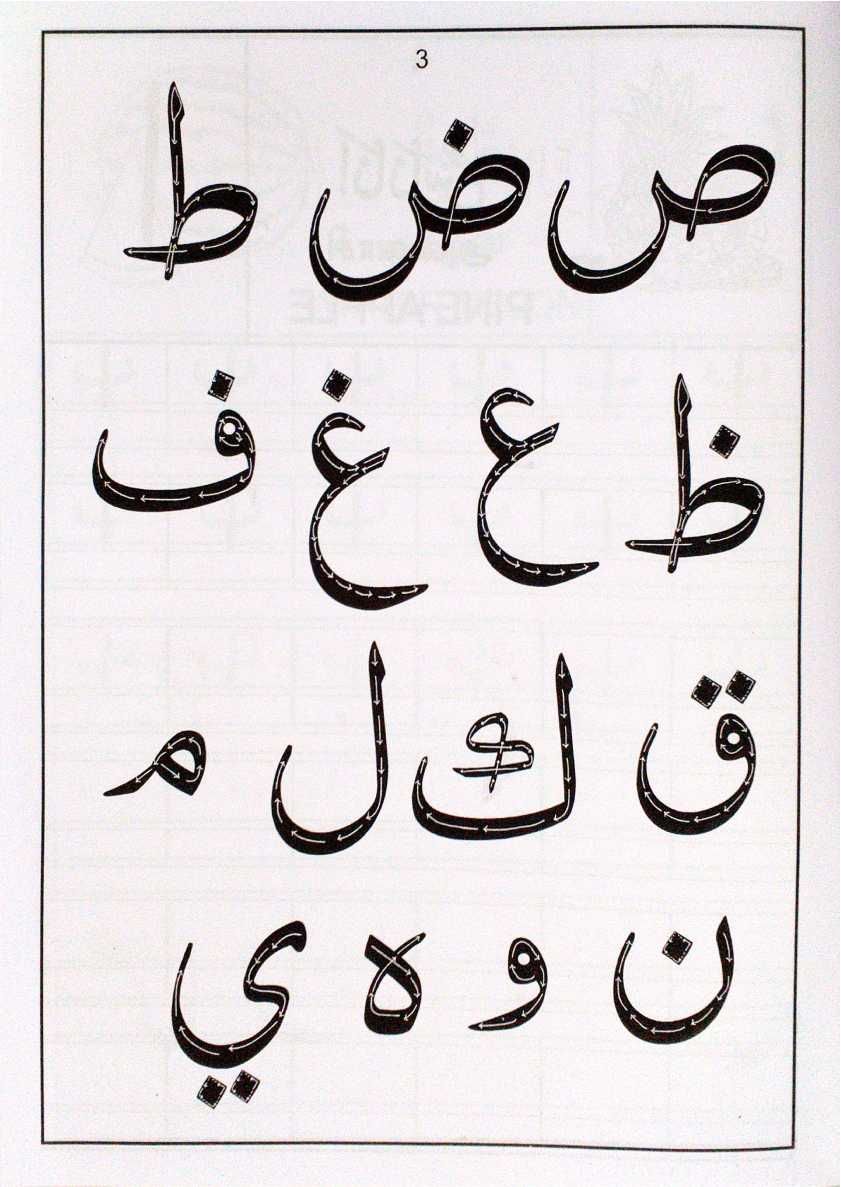 3
ص ض ط
ظ ع غ ف
ق ك ل م
ن و ه ي